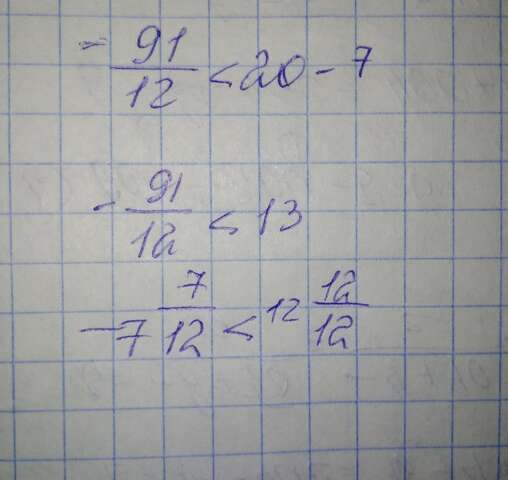 - 91/12 < 20 - 7
- 91/12 < 13
- 7 7/12 < 12 12/12